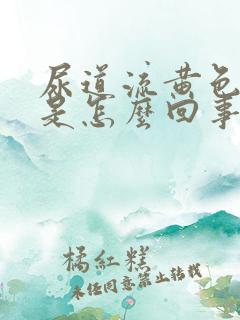 尿道流黄色
是怎麼回事
橘紅糕
未经同意禁止转载